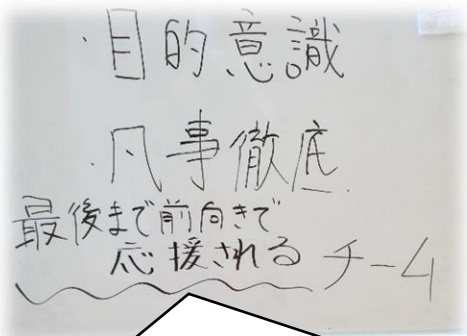 ・目的意識
・凡事徹底
最後まで前向きで
応援されるチーム